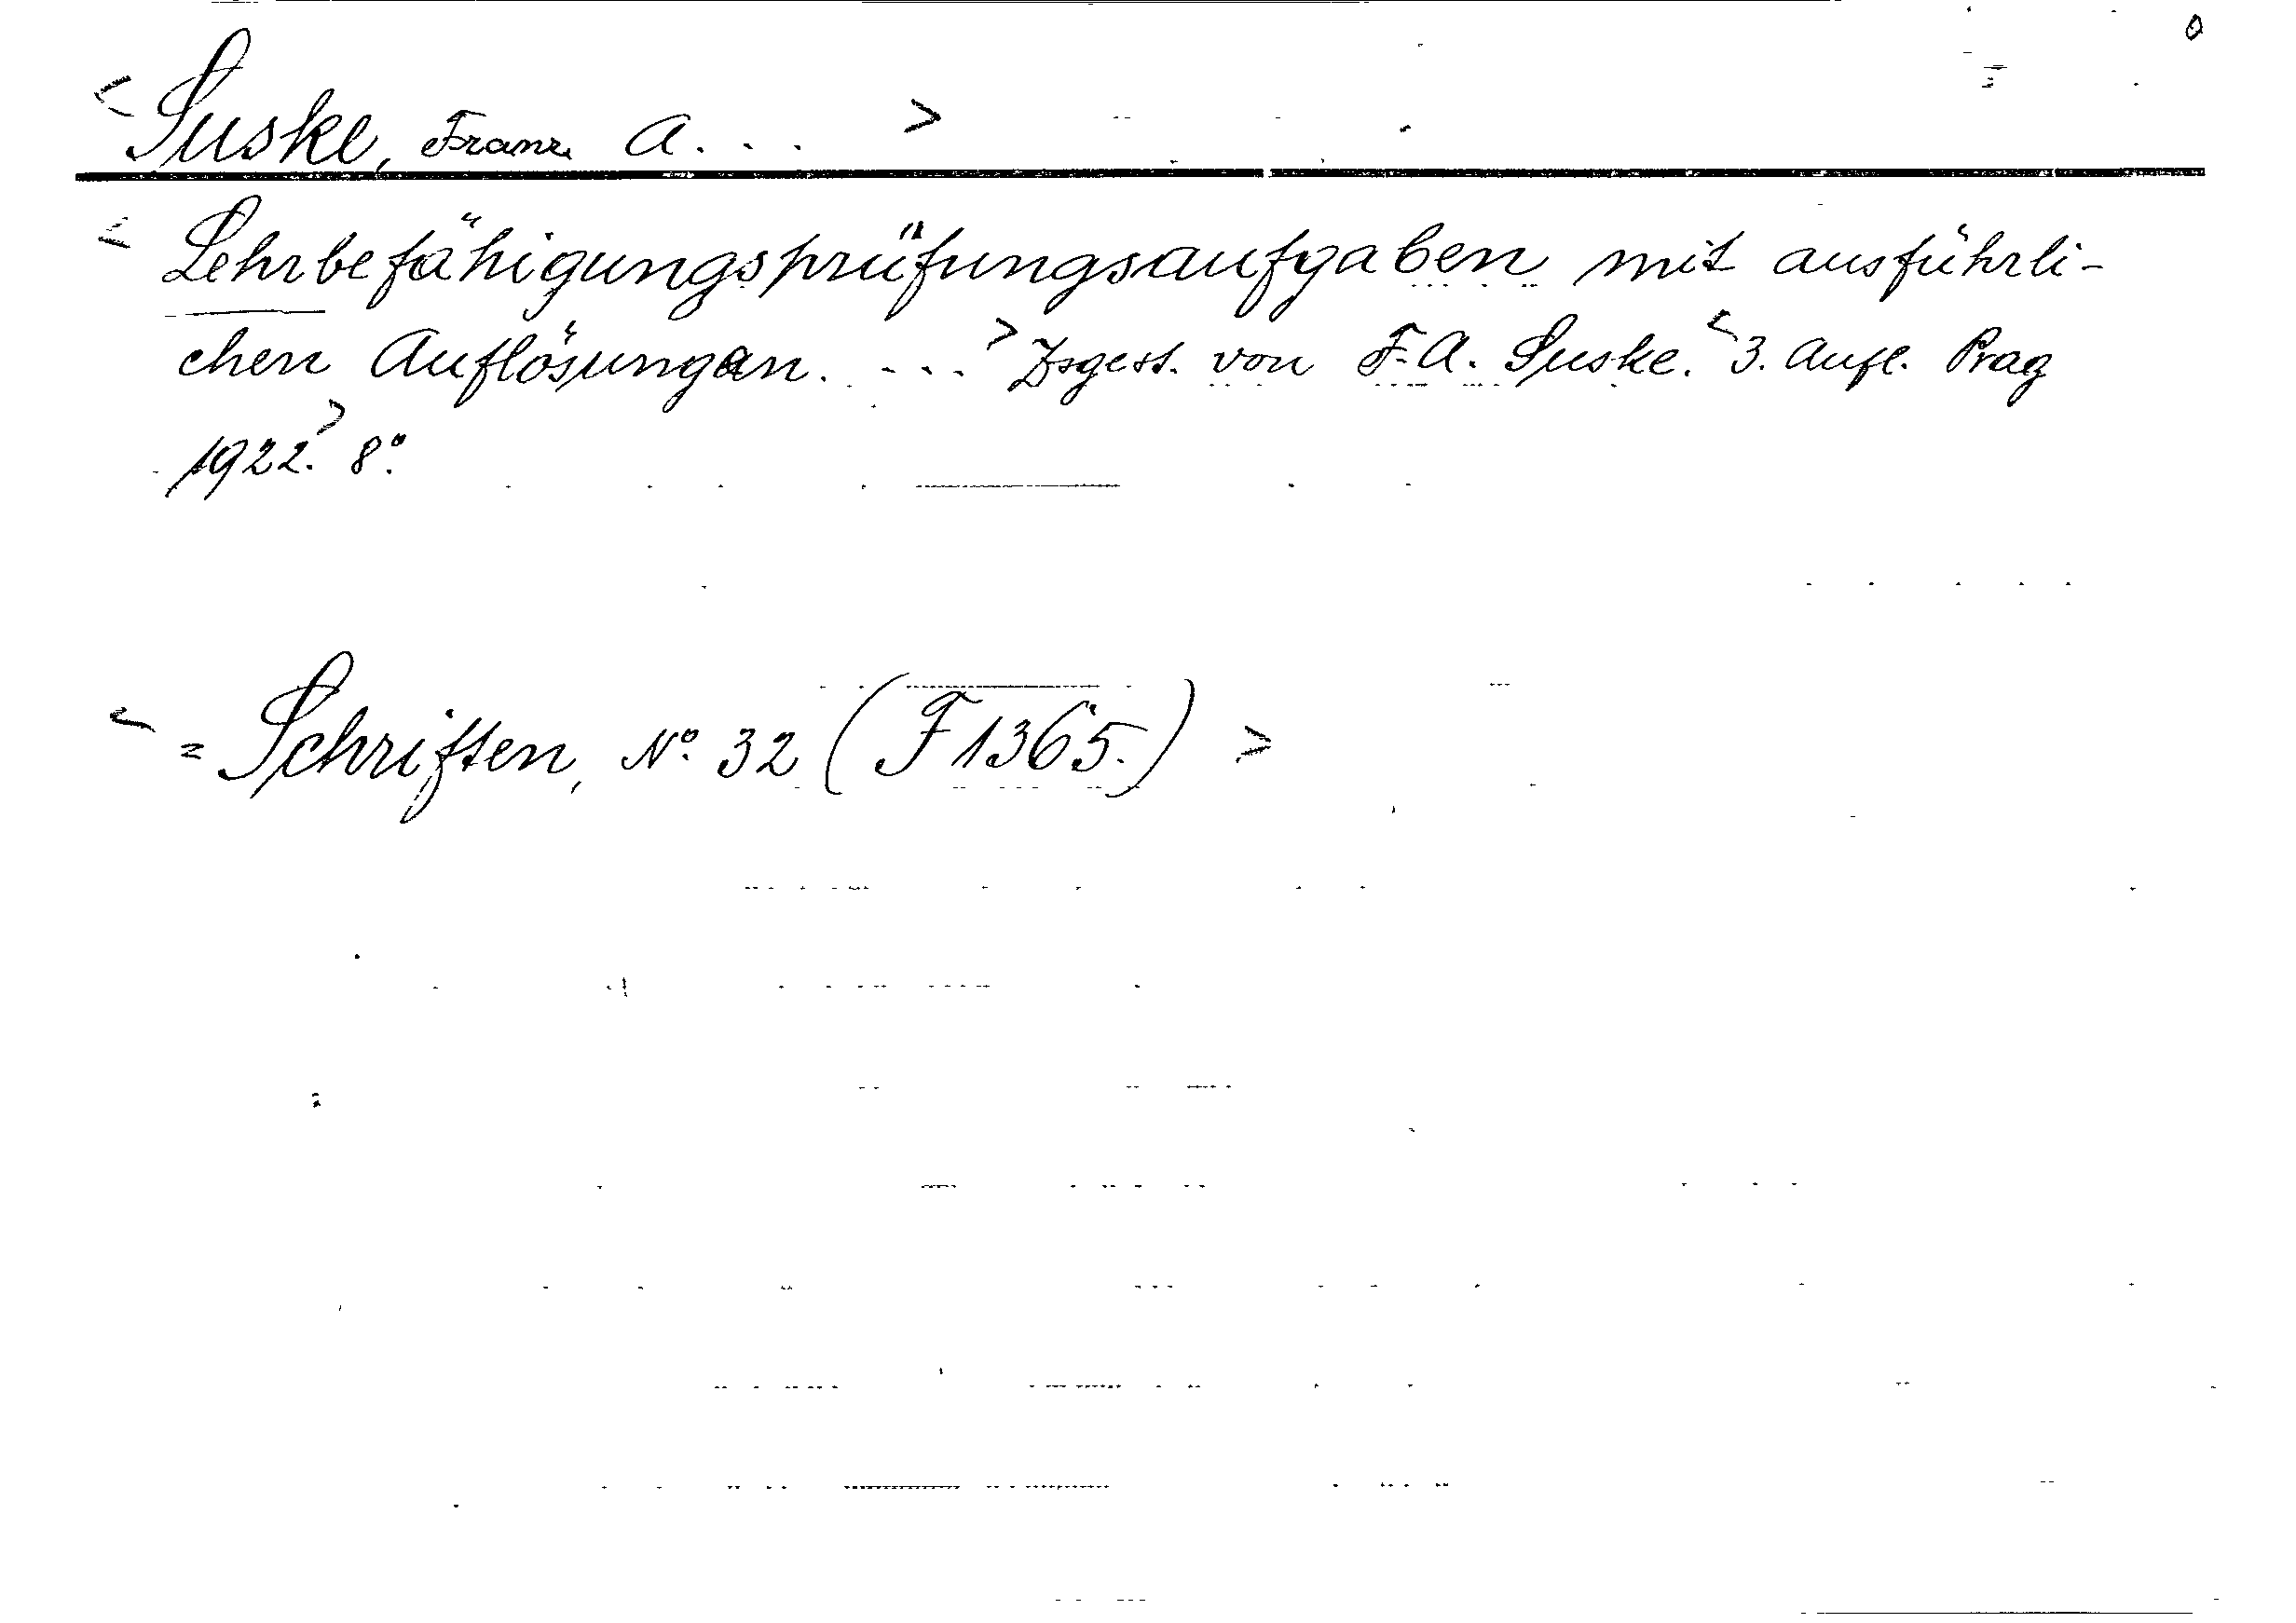 <Suske, Franz A. . . >
<Lehrbefähigungsprüfungsaufgaben mit ausführli-
chen Auflösungen. . . .> Zsgest. von F. A. Suske. <3. Aufl. Prag
1922.> 8°.
<= Schriften, No. 32 (F 1365.) >